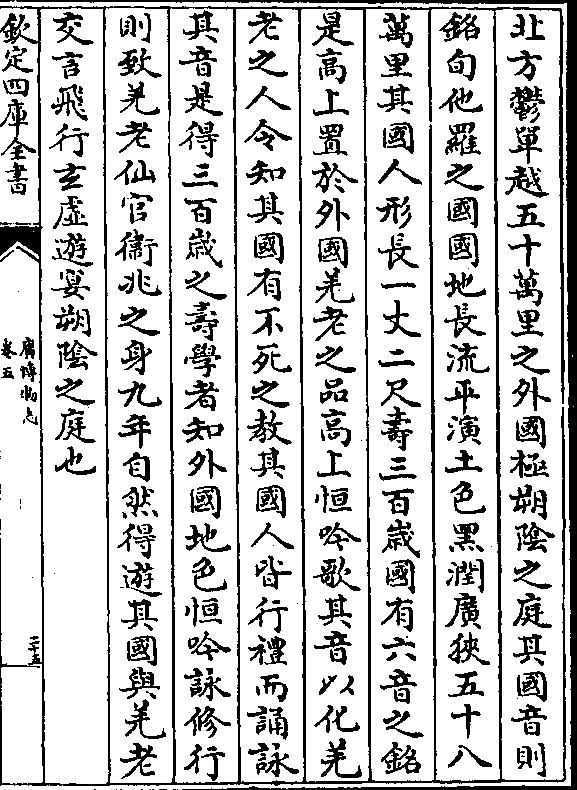 北方鬱單越五十萬里之外國極朔陰之庭其國音則
銘句他羅之國國地長流平演土色黑潤廣狹五十八
萬里其國人形長一丈二尺壽三百歲國有六音之銘
是高上置於外國羌老之品高上恒吟歌其音以化羌
老之人令知其國有不死之教其國人皆行禮而誦詠
其音是得三百歲之壽學者知外國地色恒吟詠修行
則致羌老仙官衞兆之身九年自然得遊其國與羌老
交言飛行玄虛遊宴朔陰之庭也
欽定四庫全書
廣博物志
卷五
二十五